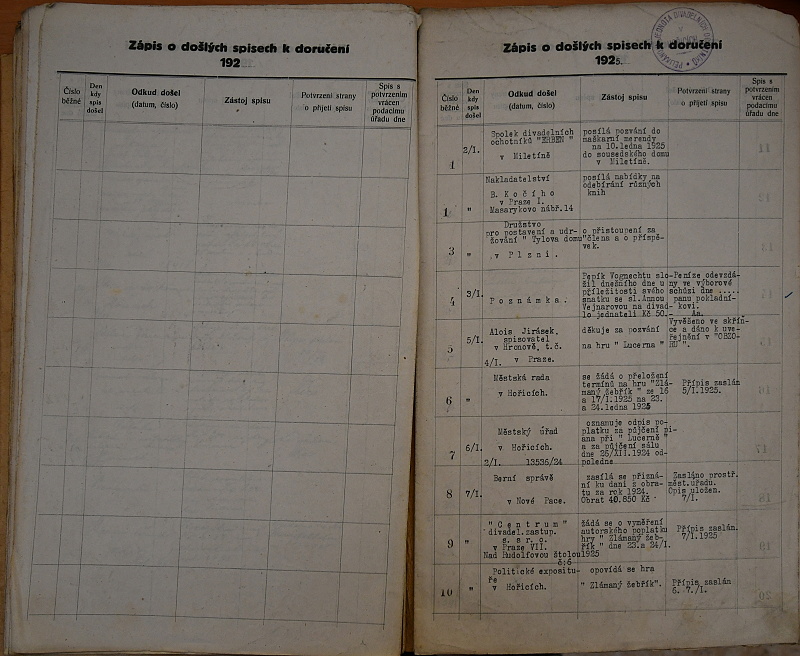 Zápis o došlých spisech k doručení
192
Číslo běžné
Den kdy spis došel
Odkud došel
(datum, číslo)
Zástoj spisu
Potvrzení strany o přijetí spisu
Spis s potvrzením vrácen podacímu úřadu dne
Zápis o došlých spisech k doručení
1925.
Číslo běžné
Den kdy spis došel
Odkud došel
(datum, číslo)
Zástoj spisu
Potvrzení strany o přijetí spisu
Spis s potvrzením vrácen podacímu úřadu dne
1
2/I.
Spolek divadelních
ochotníků "ERBEN "
v Miletíně
posílá pozvání do
maškarní merendy
na 10.ledna 1925
do sousedského domu
v Miletíně.
1
"
Nakladatelství
B. K o č í h o
v Praze I.
Masarykovo nábř.14
posílá nabídky na
odebírání různých
knih
3
"
Družstvo
pro postavení a udr-
žování " Tylova domu"
v P l z n i.
o přistoupení za
člena a o příspě-
vek.
4
3/I.
P o z n á m k a .
Pepík Vognechtu slo-
žil dnešního dne u
příležitosti svého
sňatku se sl.Annou
Vejnarovou na divad-
lo jednateli Kč 50.-
Peníze odevzdá-
ny ve výborové
schůzi dne .....
panu pokladní-
kovi.
5
5/I.
Alois Jirásek,
spisovatel
v Hronově, t.č.
4/I. v Praze.
děkuje za pozvání
na hru " Lucerna "
Vyvěšeno ve skřín-
ce a dáno k uve-
řejnění v "OBZO-
RU ".
6
"
Městská rada
v Hořicích.
se žádá o přeložení
termínů na hru "Zlá-
maný žebřík " ze 16
a 17/I.1925 na 23.
a 24.ledna 1925
Přípis zaslán
5/I.1925.
7
6/I.
Městský úřad
v Hořicích.
2/I. 13536/24
oznamuje odpis po-
platku za půjčení pi-
ana při " Lucerně "
a za půjčení sálu
dne 25/XII.1924 od-
poledne
8
7/I.
Berní správě
v Nové Pace.
zasílá se přizná-
ní ku dani z obra-
tu za rok 1924.
Obrat 40.850 Kč
Zasláno prostř.
měst.úřadu.
Opis uložen.
7/I.
9
"
" C e n t r u m "
divadel.zastup.
s. s r.o.
v Praze VII.
Nad Rudolfovou štolou
č:6
žádá se o vyměření
autorského poplatku
hry " Zlámaný žeb-
řík " dne 23.a 24/I.
1925
Přípis zaslán.
7/I.1925
10
"
Politické expositu-
ře
v Hořicích.
opovídá se hra
" Zlámaný žebřík".
Přípis zaslán
6. 7./I.